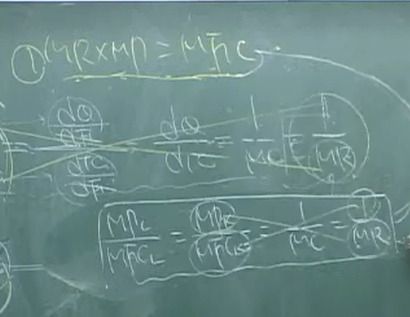 ① MR×MP = MFC
= \frac{\frac{dQ}{dF}}{\frac{dTC}{dF}} = \frac{dQ}{dTC} = \frac{1}{MC} = \frac{1}{MR}
\frac{MP_L}{MFC_L} = \frac{MP_K}{MFC_K} = \frac{1}{MC} = \frac{1}{MR}